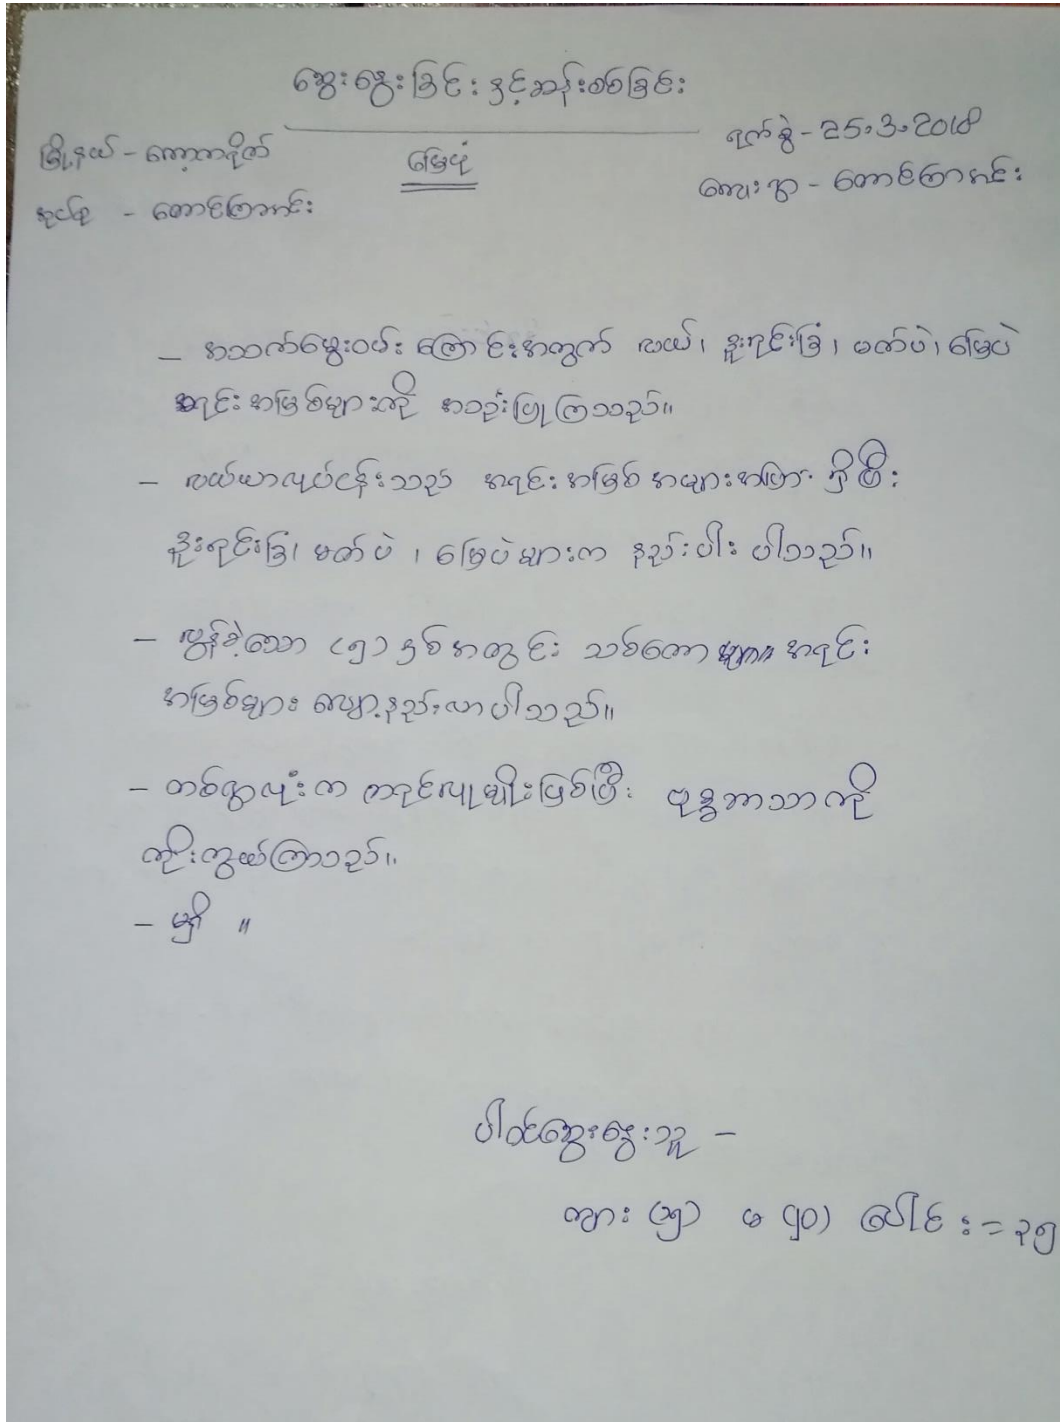 ဆွေးနွေးခြင်း နှင့်ဆန်းစစ်ခြင်း
မြို့နယ် - ကော့ကရိတ် မြေပုံ ရက်စွဲ - 25.3.2018
အုပ်စု - တောင်ကြာအင်း ကျေးရွာ - တောင်ကြာအင်း
- အသက်မွေးဝမ်း ကြောင်းအတွက် လယ်၊ နှူးရင်းခြံ၊ မတ်ပဲ၊ မြေပဲ
အရင်းအမြစ်များကို အသုံးပြုကြသည်။
- လယ်ယာလုပ်ငန်းသည် အရင်းအမြစ် အများအပြား ရှိပြီး
နှူးရင်းခြံ၊ မတ်ပဲ ၊ မြေပဲများက နည်းပါး ပါသည်။
- လွန်ခဲ့သော (၅) နှစ်အတွင်း သစ်တော များ အရင်း
အမြစ်များ လျော့နည်းလာပါသည်။
- တစ်ရွာလုံးက ကရင်လူမျိုးဖြစ်ပြီး ဗုဒ္ဓဘာသာကို
ကိုးကွယ်ကြသည်။
- မရှိ ။
ပါဝင်ဆွေးနွေးသူ -
ကျား (၁၅) မ (၂၀) ပေါင်း = ၃၅